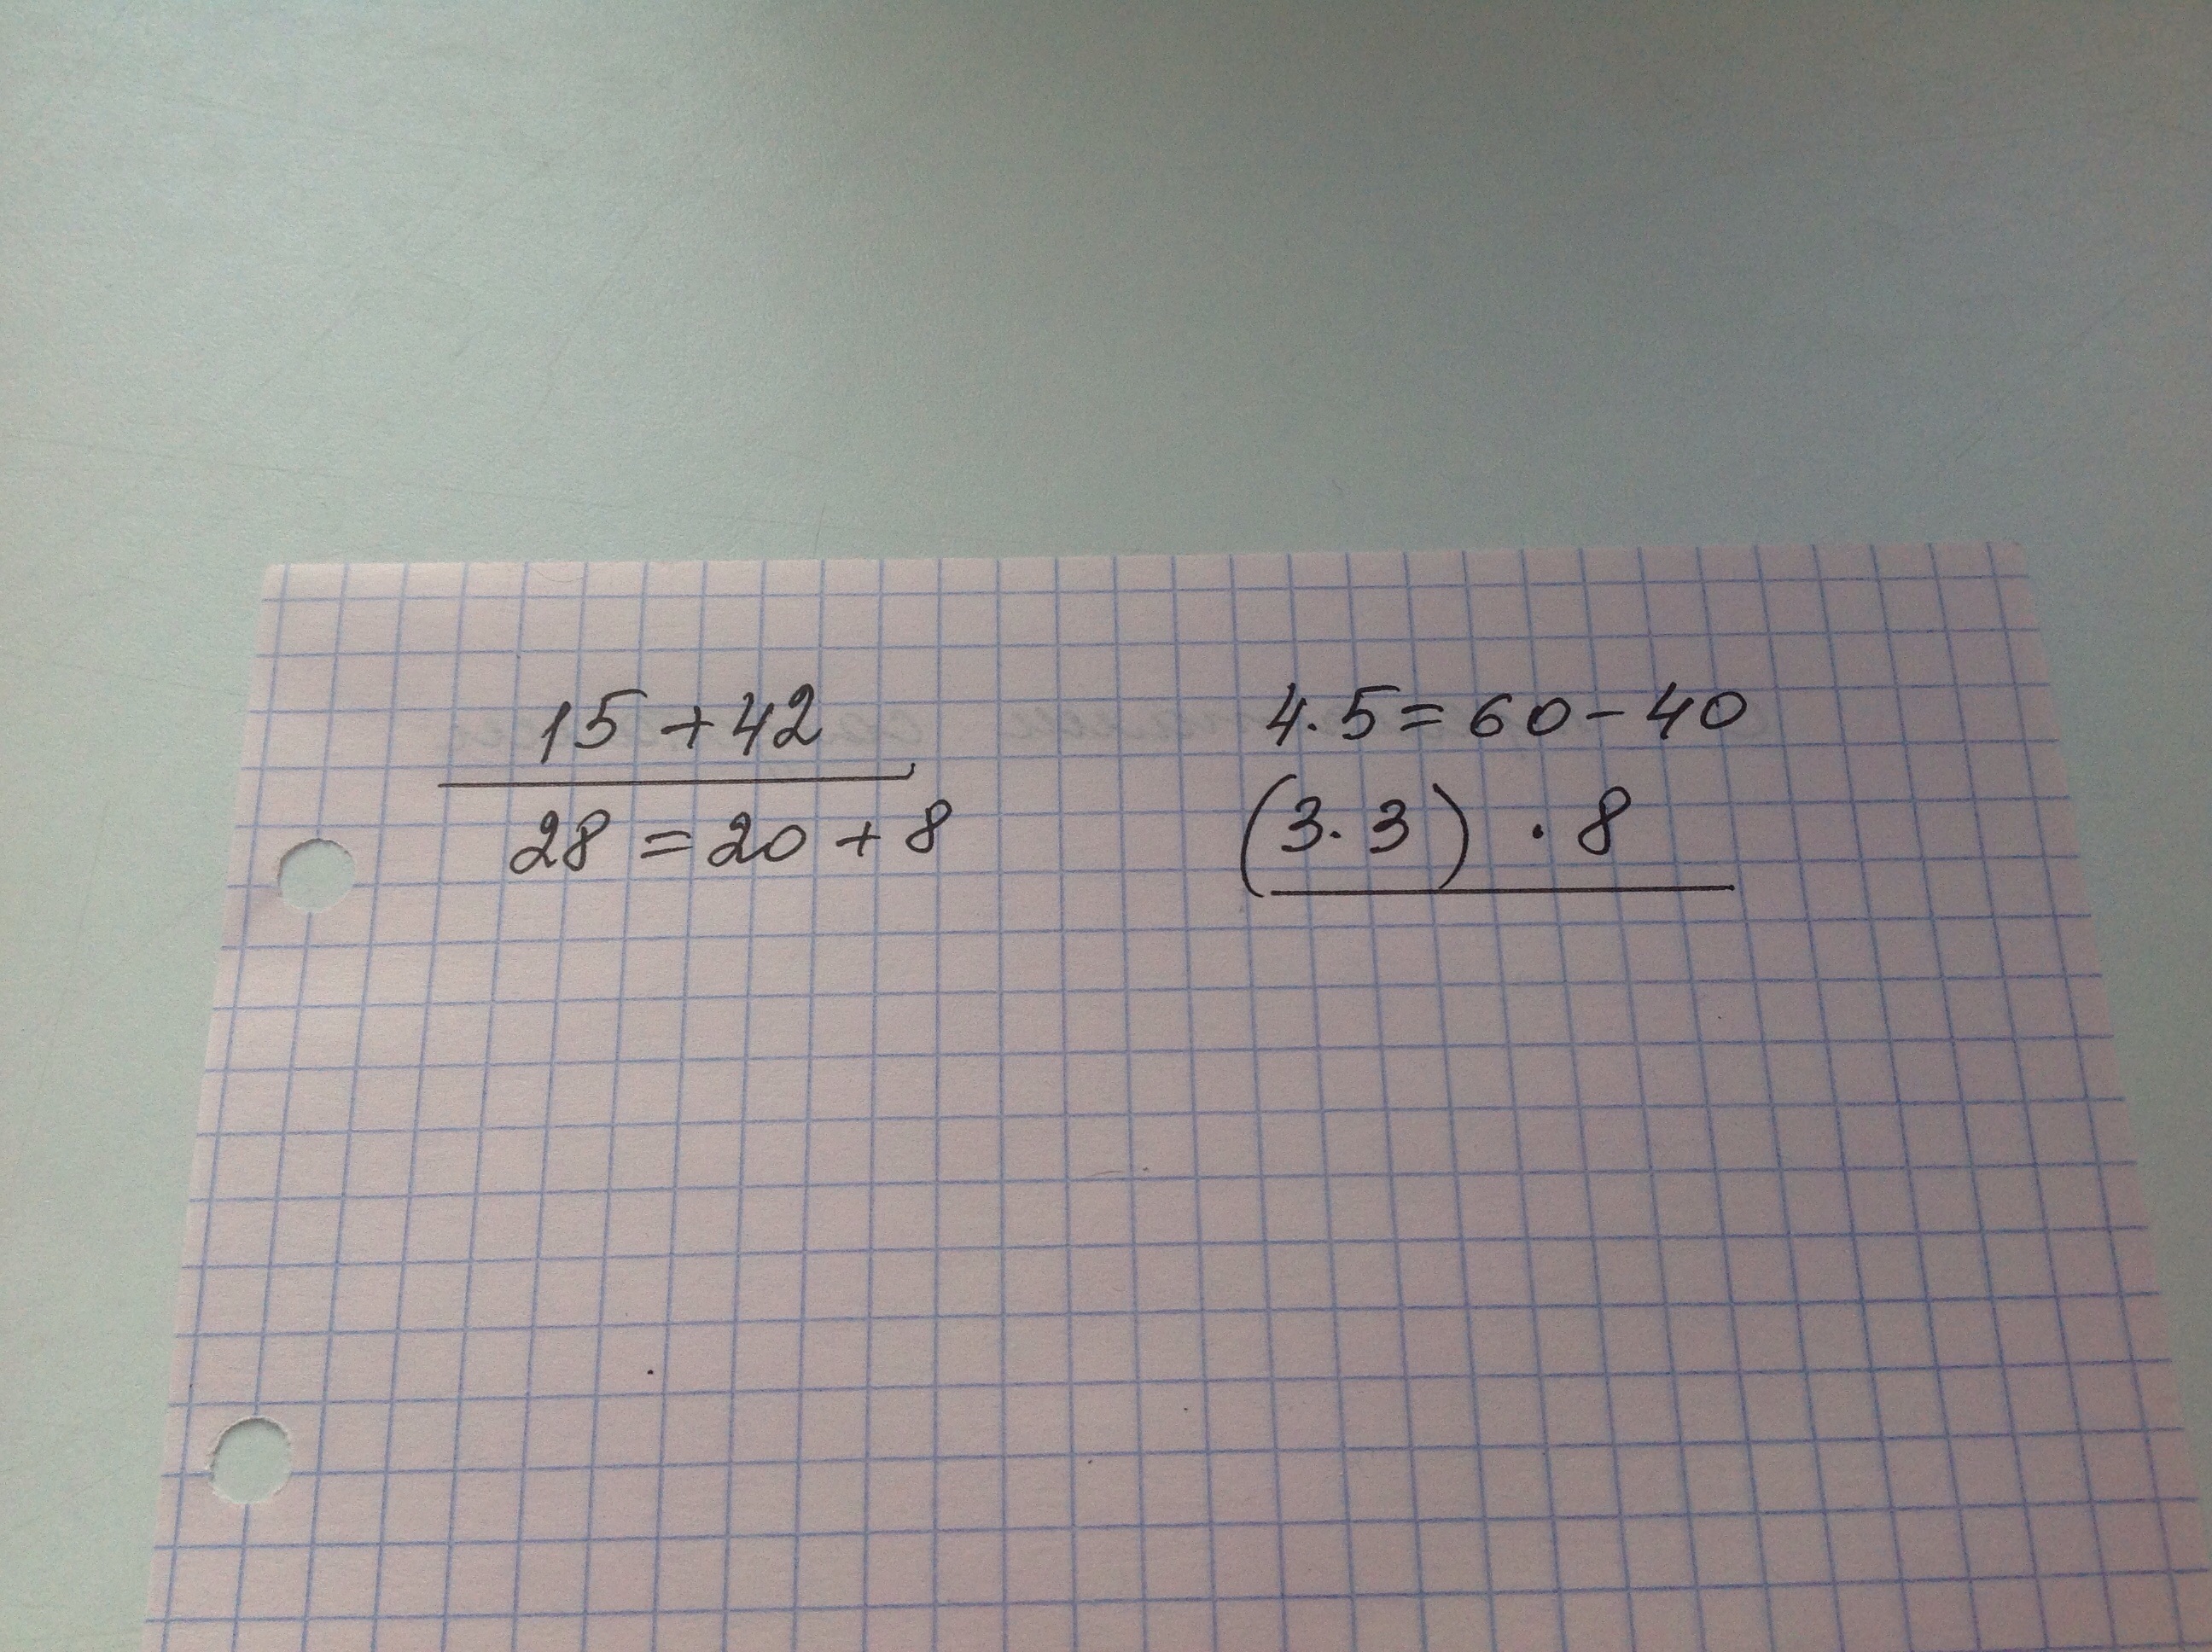 15 + 42
28 = 20 + 8
4 · 5 = 60 - 40
(3 · 3) · 8